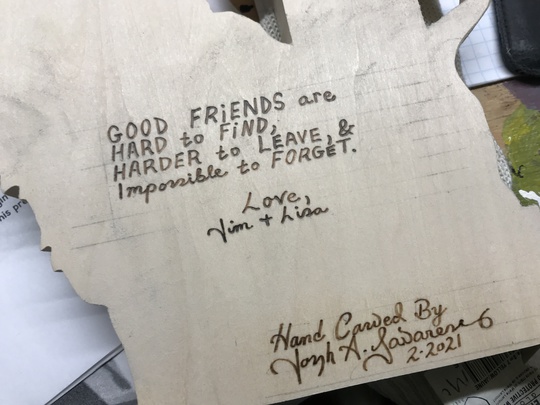 GOOD FRiENDS are
HARD to FiND,
HARDER to LEAVE, &
Impossible to FORGET.
Love,
Jim + Lisa
Hand Carved By
A.
2-2021